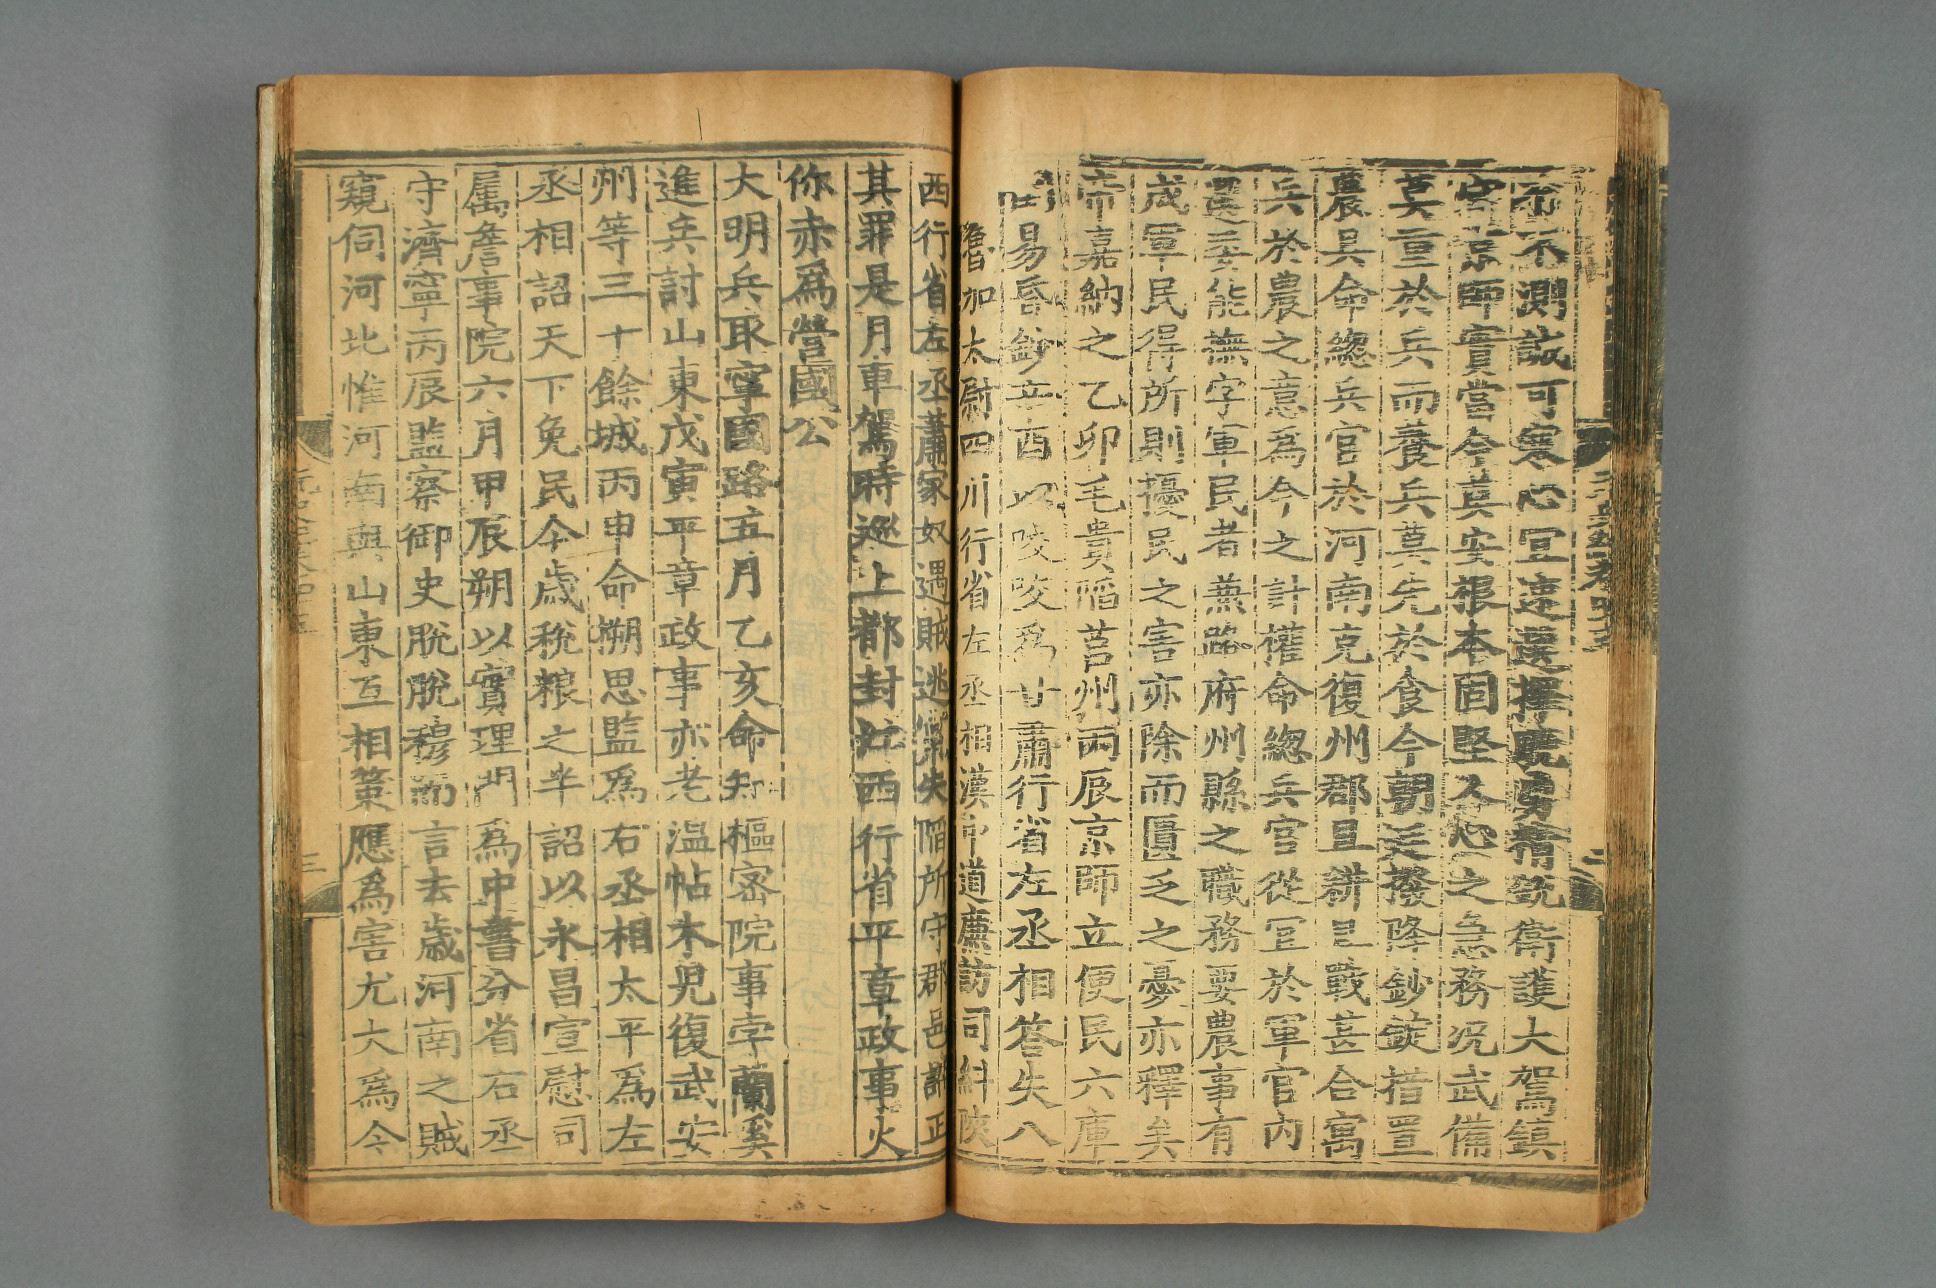 不測誠可寒心宜速選擇驍勇精銳衛護大駕鎮
守京師實當今奠安根本固堅人心之急務況武備
莫重於兵而養兵莫先於食今朝廷撥降鈔錠措置
農具命總兵官於河南克復州郡且耕且戰甚合寓
兵於農之意為今之計權命總兵官從宜於軍官內
選委能撫字軍民者兼路府州縣之職務要農事有
成軍民得所則擾民之害亦除而匱乏之憂亦釋矣
帝嘉納之乙卯毛貴陷莒州丙辰京師立便民六庫
易昏鈔辛酉以咬咬為甘肅行省左丞相答失八
魯加太尉四川行省左丞相漢中道廉訪司糾陝
西行省左丞蕭家奴遇賊逃竄失陷所守郡邑詔正
其罪是月車駕時巡上都封江西行省平章政事火
你赤為營國公
大明兵取寧國路五月乙亥命知樞密院事孛蘭奚
進兵討山東戊寅平章政事亦老溫帖木兒復武安
州等三十餘城丙申命搠思監為右丞相太平為左
丞相詔天下免民今歲稅粮之半詔以永昌宣慰司
屬詹事院六月甲辰朔以實理門為中書分省右丞
守濟寧丙辰監察御史脫脫穆而言去歲河南之賊
窺伺河北惟河南與山東互相策應為害尤大為今
三